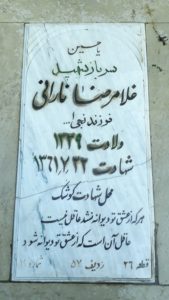 یا حسین
سرباز شهید
غلامرضا نارانی
فرزند نجی ا...
ولادت ۱۳۳۹
شهادت ۱۳۶۱/۷/۲۲
محل شهادت کوشک
هر که از عشق تو دیوانه نشد عاقل نیست
عاقل آن است که از عشق تو دیوانه شود
قطعه ۲۶ ردیف ۵۷ شماره